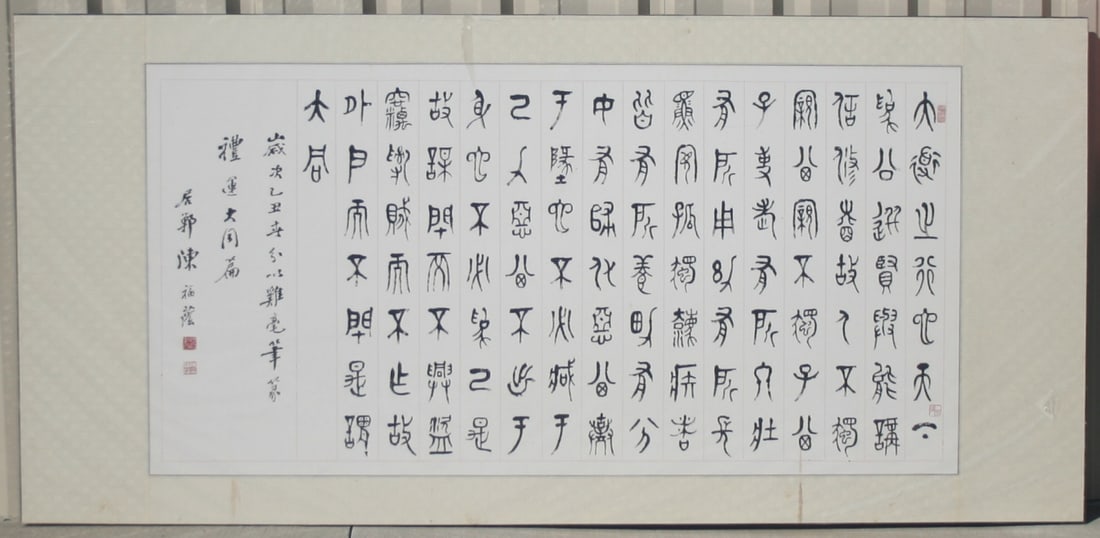 大道之行也天下
為公選賢與能講
信修睦故人不獨
親其親不獨子其
子使老有所終壯
有所用幼有所長
鰥寡孤獨廢疾者
皆有所養男有分
女有歸貨惡其棄
于地也不必藏于
己力惡其不出于
身也不必為己是
故謀閉而不興盜
竊亂賊而不作故
外戶而不閉是謂
大同
歲次乙丑春分以雞毫筆篆
禮運大同篇
陳福蔭